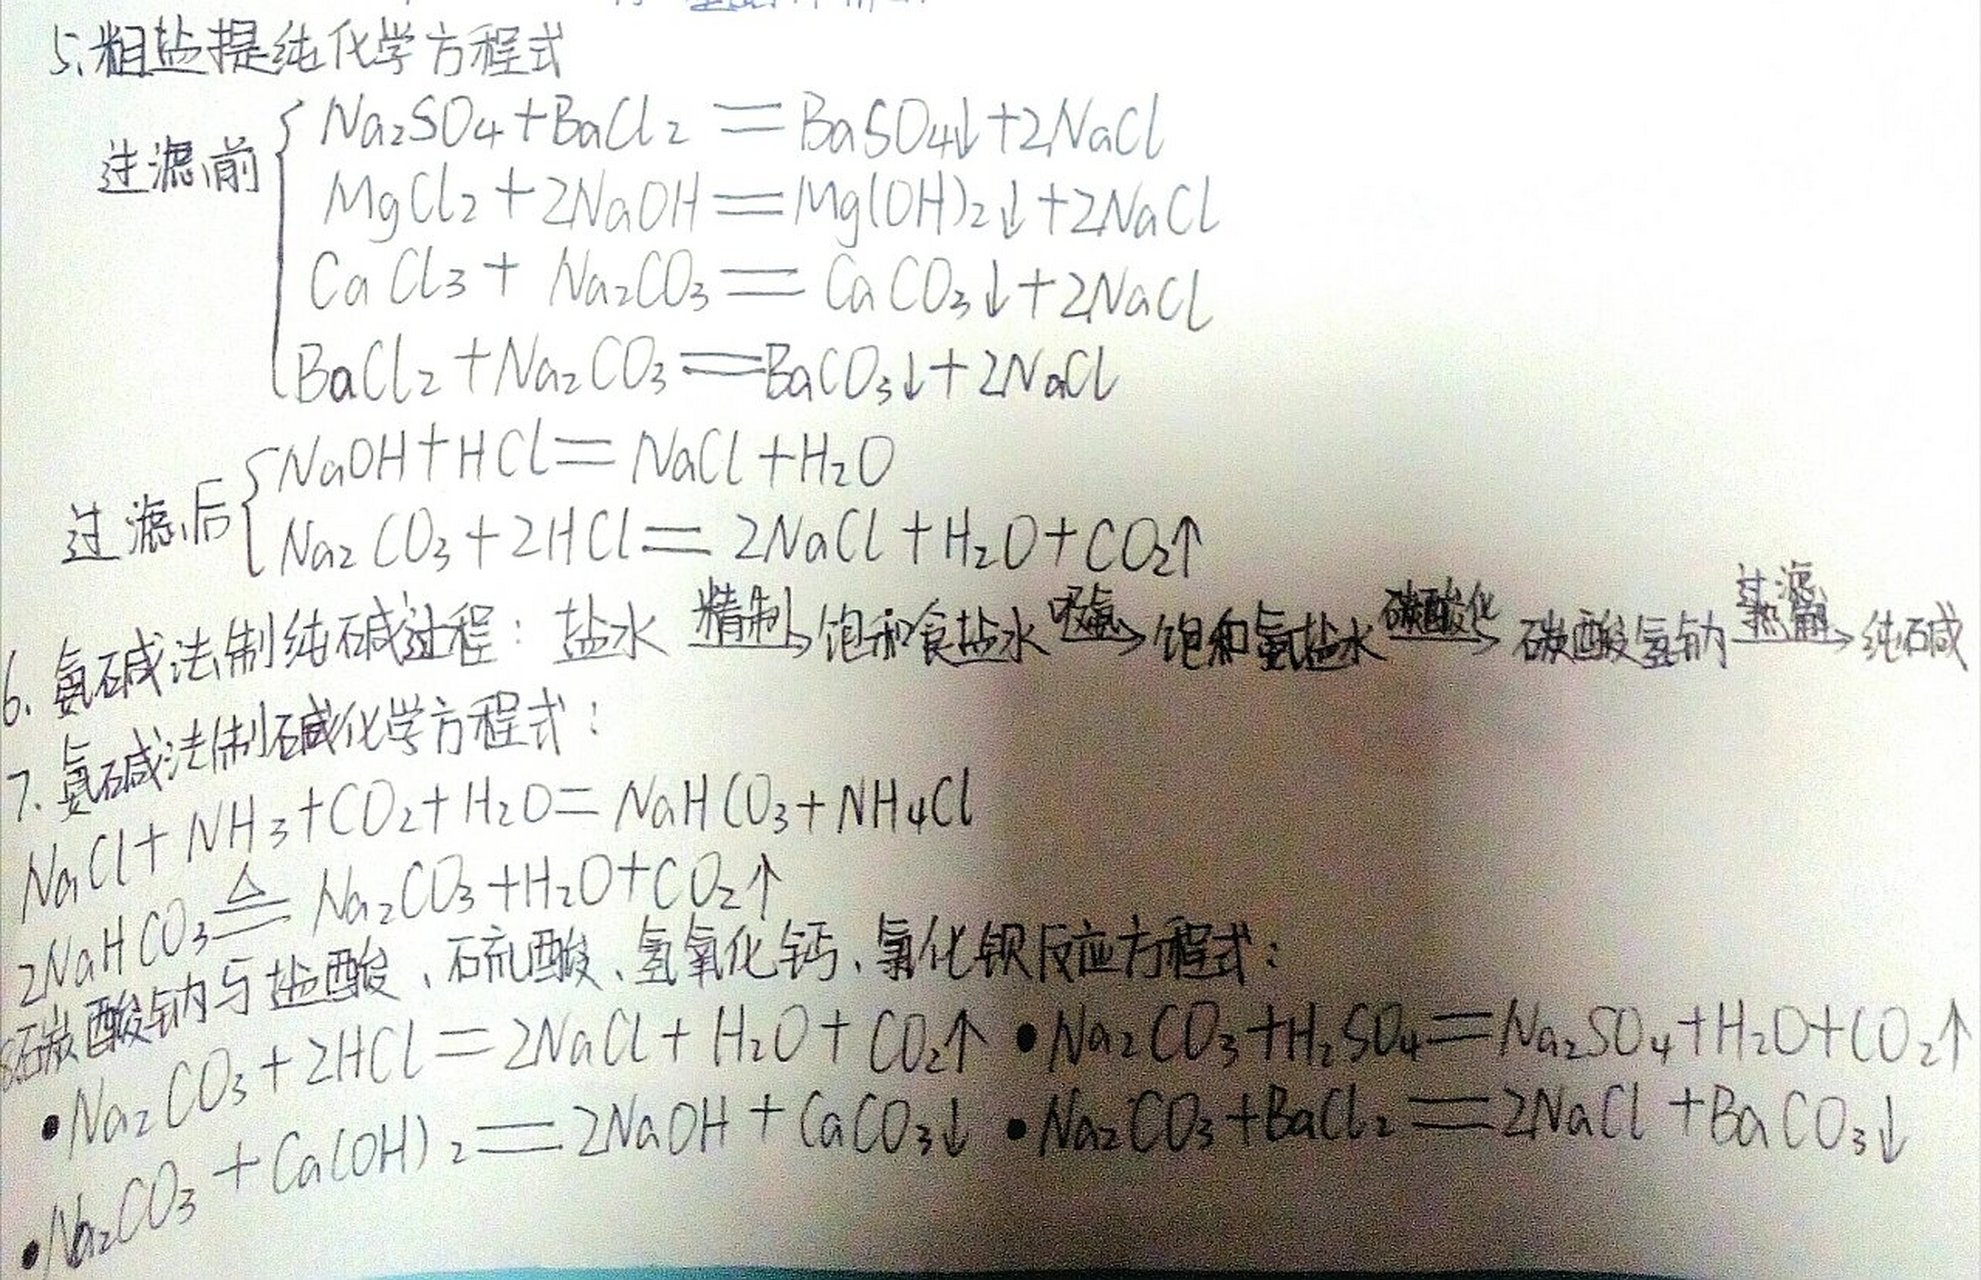 5.粗盐提纯化学方程式
过滤前
Na₂SO₄+BaCl₂=BaSO₄↓+2NaCl
MgCl₂+2NaOH=Mg(OH)₂↓+2NaCl
CaCl₃+Na₂CO₃=CaCO₃↓+2NaCl
BaCl₂+Na₂CO₃=BaCO₃↓+2NaCl
过滤后
NaOH+HCl=NaCl+H₂O
Na₂CO₃+2HCl=2NaCl+H₂O+CO₂↑
6.氨碱法制纯碱过程:盐水 精制→饱和食盐水 吸氨→饱和氨盐水 碳酸化→碳酸氢钠 过滤 热解→纯碱
7.氨碱法制碱化学方程式:
NaCl+NH₃+CO₂+H₂O=NaHCO₃+NH₄Cl
2NaHCO₃≜Na₂CO₃+H₂O+CO₂↑
8碳酸钠与盐酸、硫酸、氢氧化钙、氯化钡反应方程式:
•Na₂CO₃+2HCl=2NaCl+H₂O+CO₂↑ •Na₂CO₃+H₂SO₄=Na₂SO₄+H₂O+CO₂↑
•Na₂CO₃+Ca(OH)₂=2NaOH+CaCO₃↓ •Na₂CO₃+BaCl₂=2NaCl+BaCO₃↓